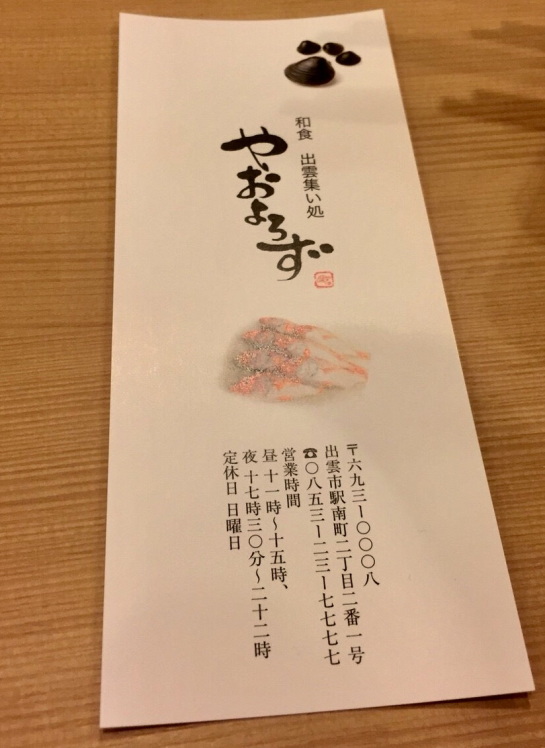 和食 出雲集い処
やおよろず
〒六九三ー〇〇〇八
出雲市駅南町二丁目二番一号
☎〇八五三ー二三ー七七七七
営業時間
昼 十一時〜十五時、
夜 十七時三〇分〜二十二時
定休日 日曜日